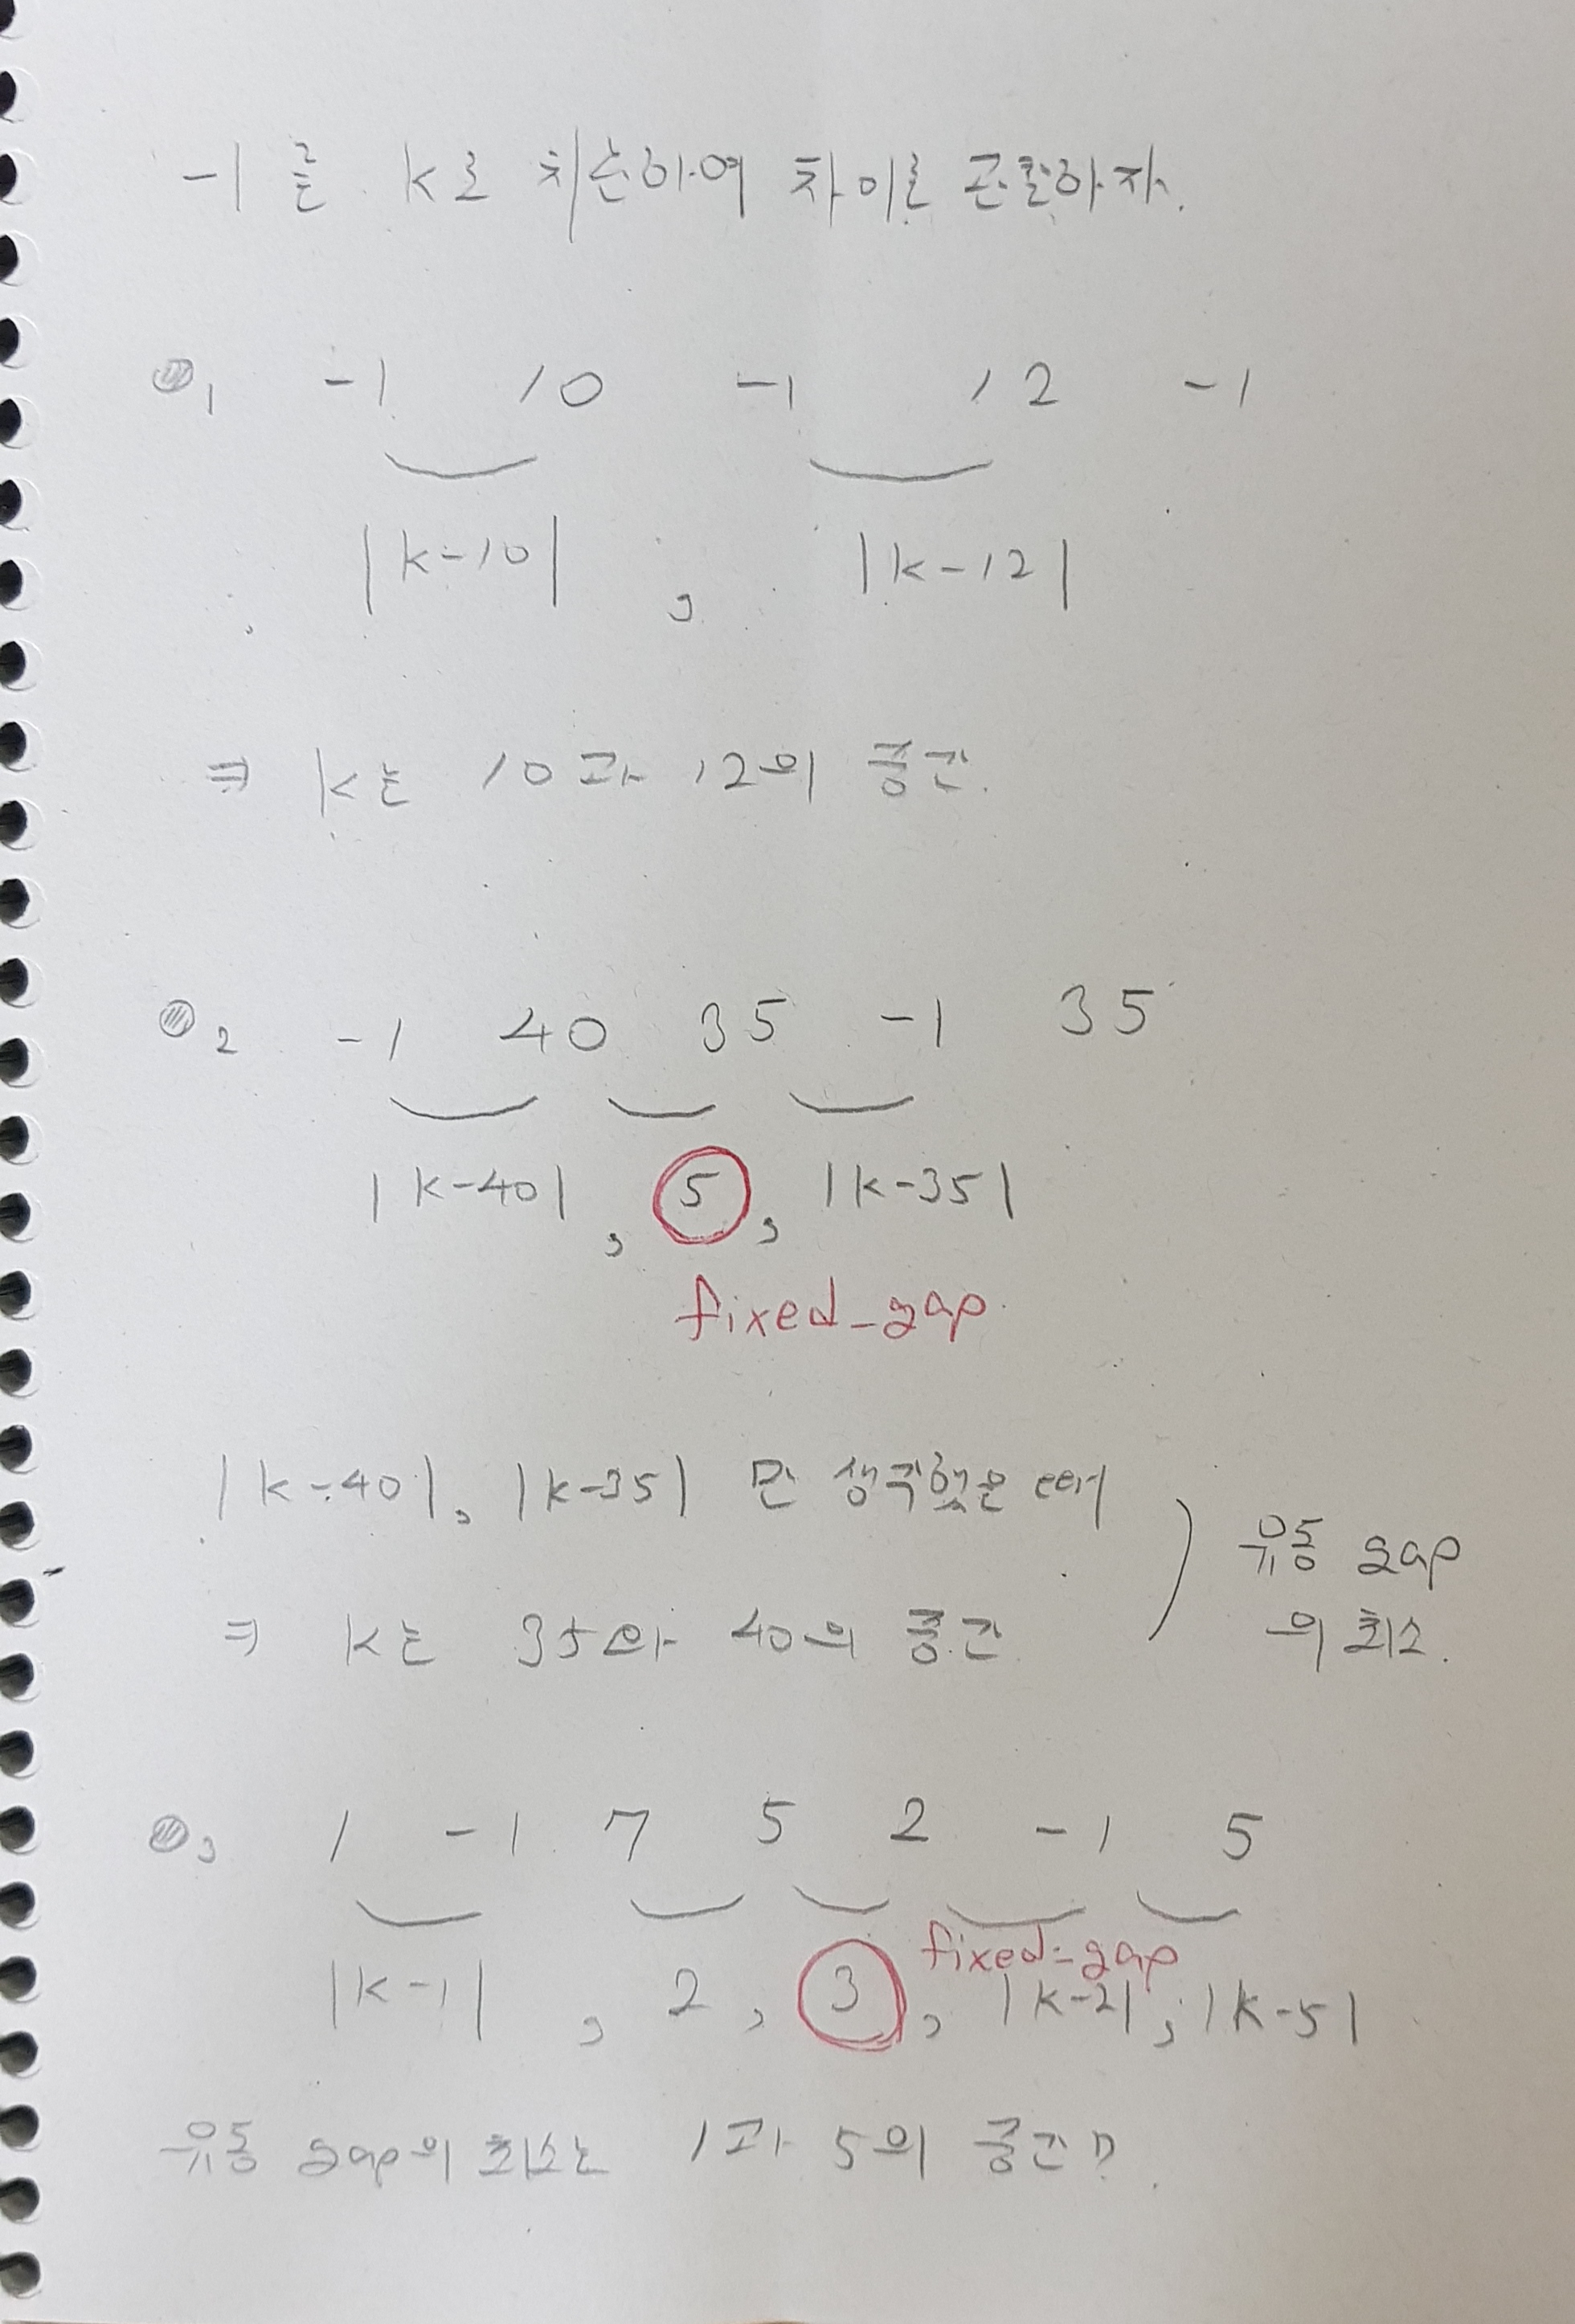 -1 를 k로 치환하여 차이를 관찰하자.
1 -1 10 -1 12 -1
|k-10| , |k-12|
⇒ k는 10과 12의 중간.
2 -1 40 35 -1 35
|k-40| , 5 , |k-35|
fixed_gap
|k-40|, |k-35| 만 생각했을 때
⇒ k는 35와 40의 중간
유동 gap
의 최소.
3 1 -1 7 5 2 -1 5
fixed-gap
|k-1| , 2 , 3 , |k-2| , |k-5|
유동 gap의 최소는 1과 5의 중간?